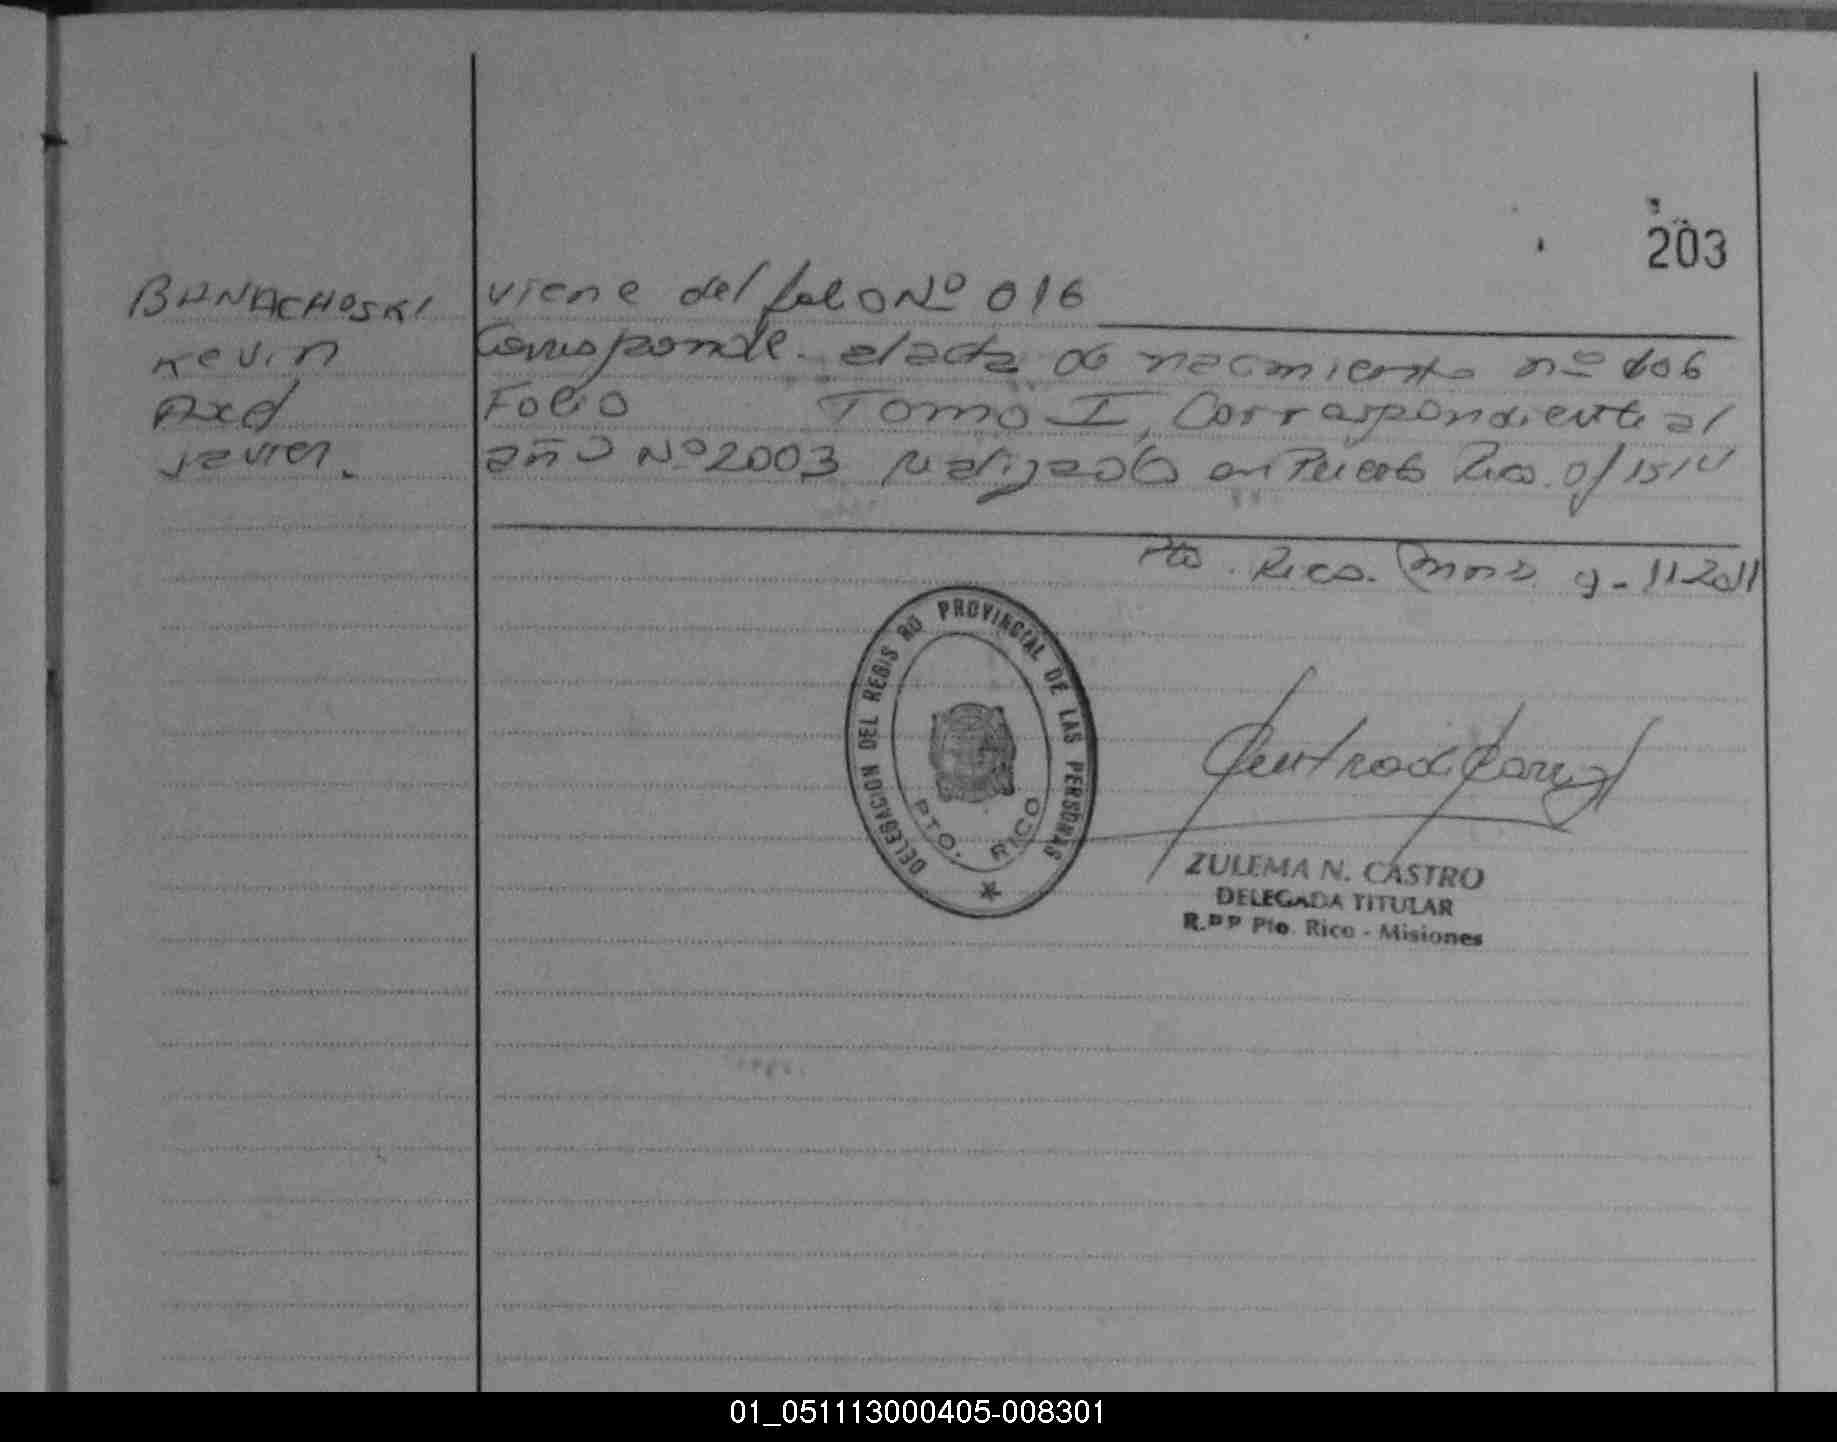 203
BANACHOSKI
Kevin
Axel
Javier.
viene del folio Nº 016
Corresponde al acta de nacimiento nº 106
Folio Tomo I, Correspondiente al
año Nº 2003 realizado en Puerto Rico.
Pto. Rico. Mnes 9-11-2011
DELEGACION DEL REGIS RO PROVINCIAL DE LAS PERSONAS
PTO. RICO
ZULEMA N. CASTRO
DELEGADA TITULAR
R.PP Pto. Rico - Misiones
01_051113000405-008301